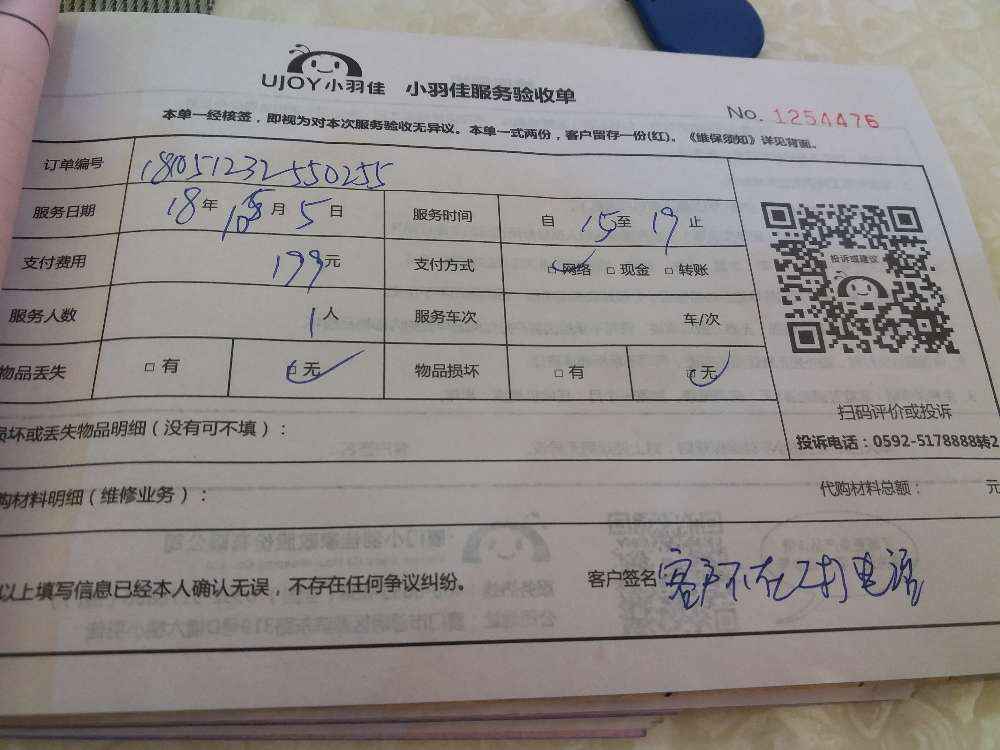 UJOY小羽佳 小羽佳服务验收单
No. 1254476
本单一经核签，即视为对本次服务验收无异议。本单一式两份，客户留存一份(红)。《维保须知》详见背面。
订单编号 18051232550255
服务日期 18年 月5日 服务时间 自15至19止
支付费用 199元 支付方式 □网络 □现金 □转账
投诉或建议
服务人数 1人 服务车次 车/次
物品丢失 □有 □无 物品损坏 □有 □无
扫码评价或投诉
投诉电话：0592-5178888转2
损坏或丢失物品明细（没有可不填）：
购材料明细（维修业务）： 代购材料总额： 元
以上填写信息已经本人确认无误，不存在任何争议纠纷。 客户签名 客户不在 打电话